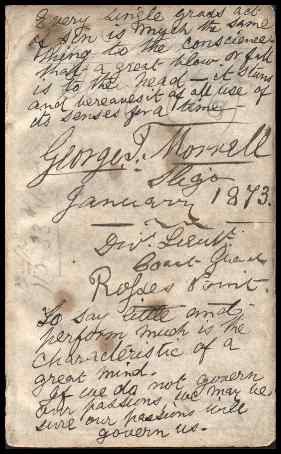 Every single gross act
of sin is much the same
thing to the conscience
that a great blow or fall
is to the head - it stuns
and bereaves it of all use of
its senses for a time -
George T. Morrell
Sligo
January 1873.
Div. Lieut.
Coast Guard
Rosses Point.
To say little and
perform much is the
characteristic of a
great mind.
If we do not govern
our passions we may be
sure our passions will
govern us.